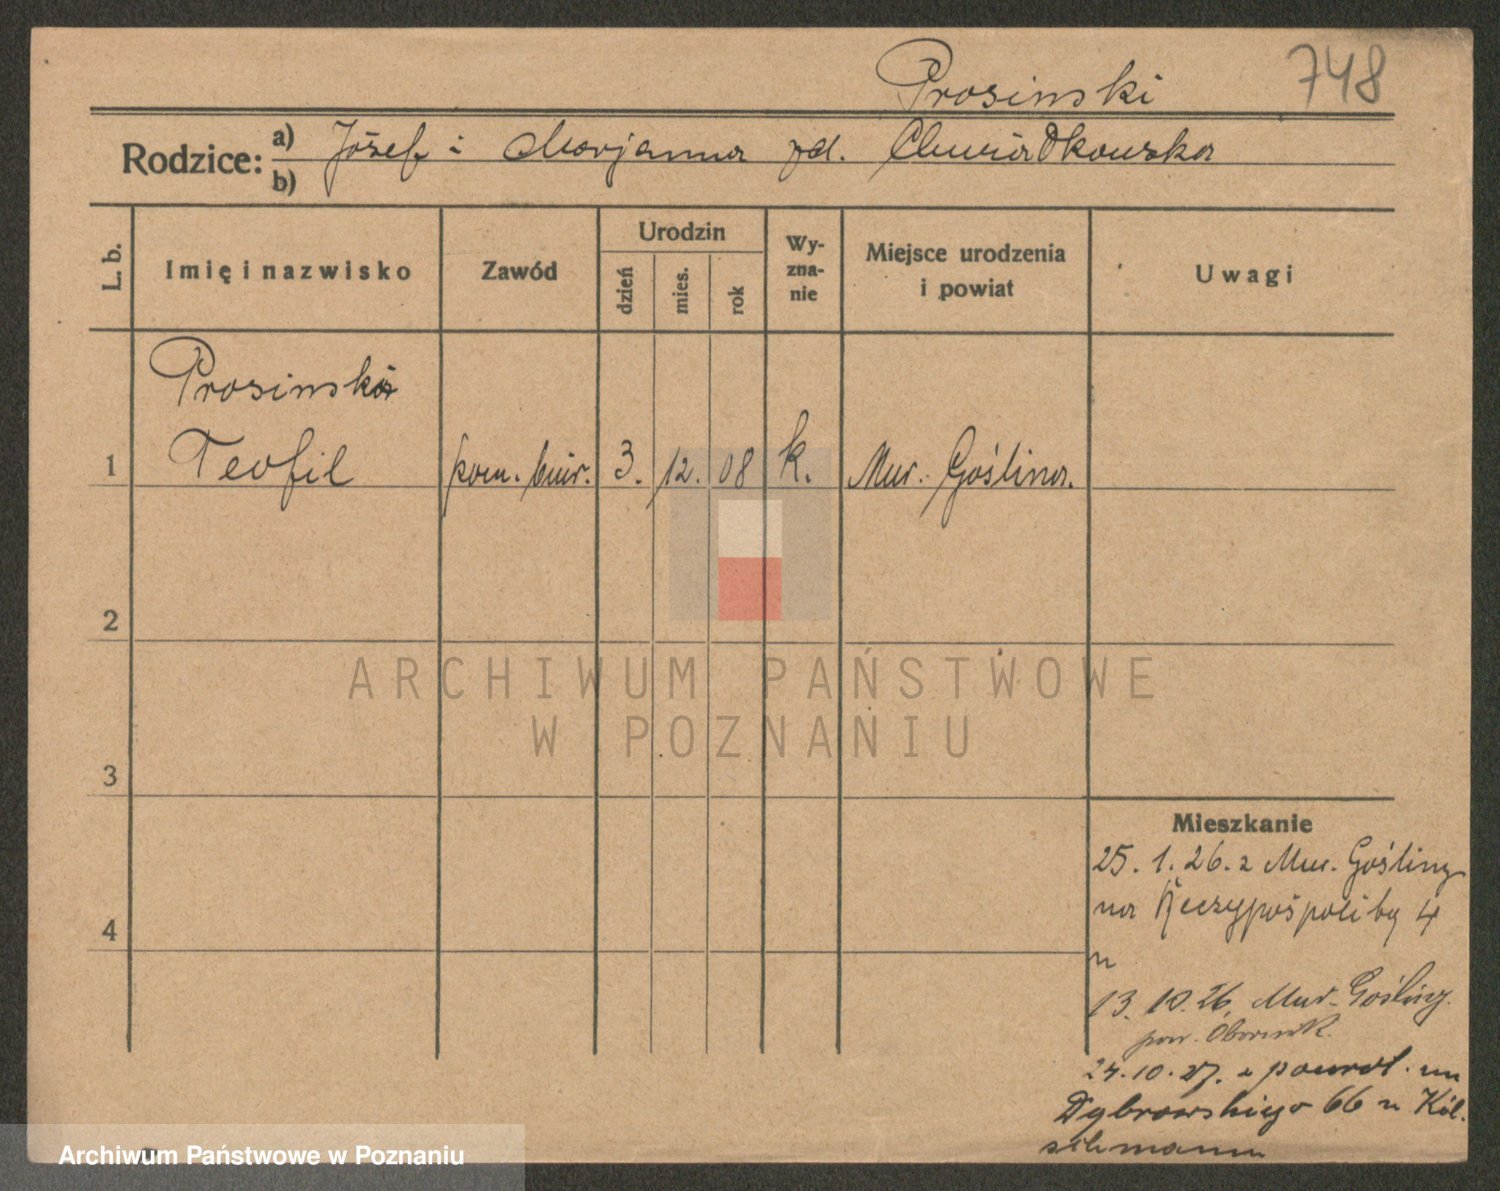 Prosinski 748
Rodzice: a) Józef i Marjanna zd. Chwiałkowska
b)
L. b. Imię i nazwisko Zawód Urodzin dzień mies. rok Wyzna-nie Miejsce urodzenia i powiat Uwagi
Prosinski
1 Teofil pom. biur. 3. 12. 08 k. Mur. Goślina.
2
3
4
Mieszkanie
25. 1. 26. z Mur. Gośliny
na Rzeczypospolitej 4
u
13. 10. 26. Mur. Gośliny.
pow. Obornik.
24. 10. 27. z powrot. na
Dąbrowskiego 66 u
ARCHIWUM PAŃSTWOWE
W POZNANIU
Archiwum Państwowe w Poznaniu